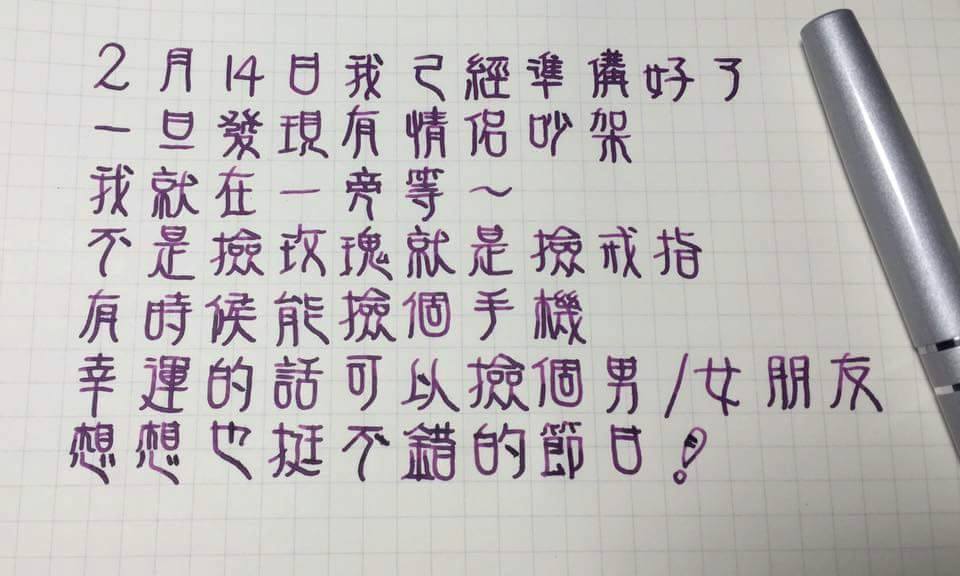 2月14日我已經準備好了
一旦發現有情侶吵架
我就在一旁等~
不是撿玫瑰就是撿戒指
有時候能撿個手機
幸運的話可以撿個男/女朋友
想想也挺不錯的節日!